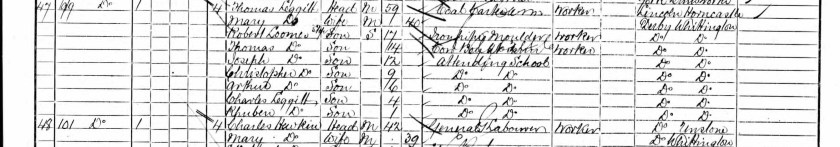 47 99 Do 1 4 Thomas Leggitt Head M 59 Worker Lincoln Horncastle
Mary Do Wife M 40 Derby Whittington
Robert Loomes Son S 17 Iron Moulder Worker Do Do
Thomas Do Son 14 Worker Do Do
Joseph Do Son 12 Attending School Do Do
Christopher Do Son 9 Do Do Do Do
Arthur Do Son 6 Do Do Do Do
Charles Leggitt Son 4 Do Do Do Do
Rheuben Do Son 1 Do Do Do Do
48 101 Do 1 4 Charles Hawkin Head M 42 General Labourer Worker Do Unstone
Mary Do Wife M 39 Do Whittington